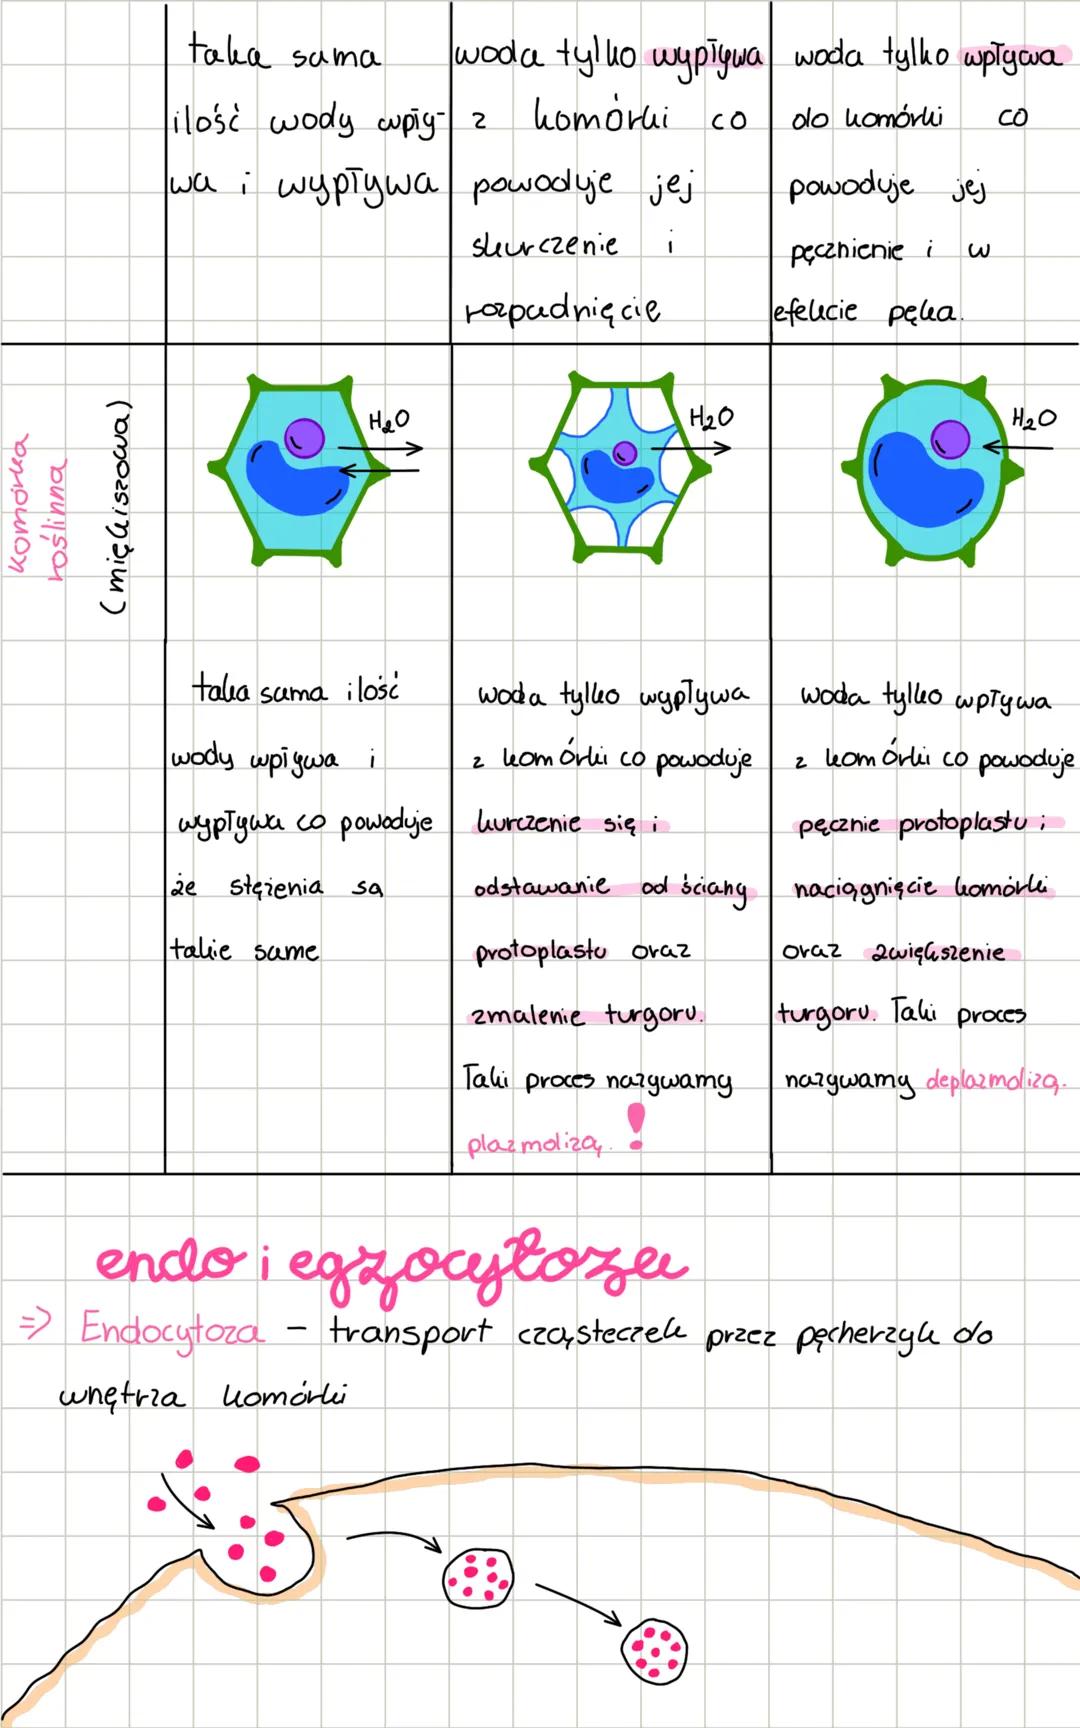 taka sama
ilość wody wpły-
wa i wypływa
woda tylko wypływa
z komórki co
powoduje jej
skurczenie i
rozpadnięcie
woda tylko wpływa
do komórki co
powoduje jej
pęcznienie i w
efekcie pęka.
komórka
roślinna
(miękiszowa)
H₂O
H₂O
H₂O
taka sama ilość
wody wpływa i
wypływa co powoduje
że stężenia są
takie same
woda tylko wypływa
z komórki co powoduje
kurczenie się i
odstawanie od ściany
protoplastu oraz
zmalenie turgoru.
Taki proces nazywamy
plazmolizą. !
woda tylko wpływa
z komórki co powoduje
pęcznie protoplastu i
naciągnięcie komórki
oraz zwiększenie
turgoru. Taki proces
nazywamy deplazmolizą.
endo i egzocytoza
=> Endocytoza - transport cząsteczek przez pęcherzyk do
wnętrza komórki